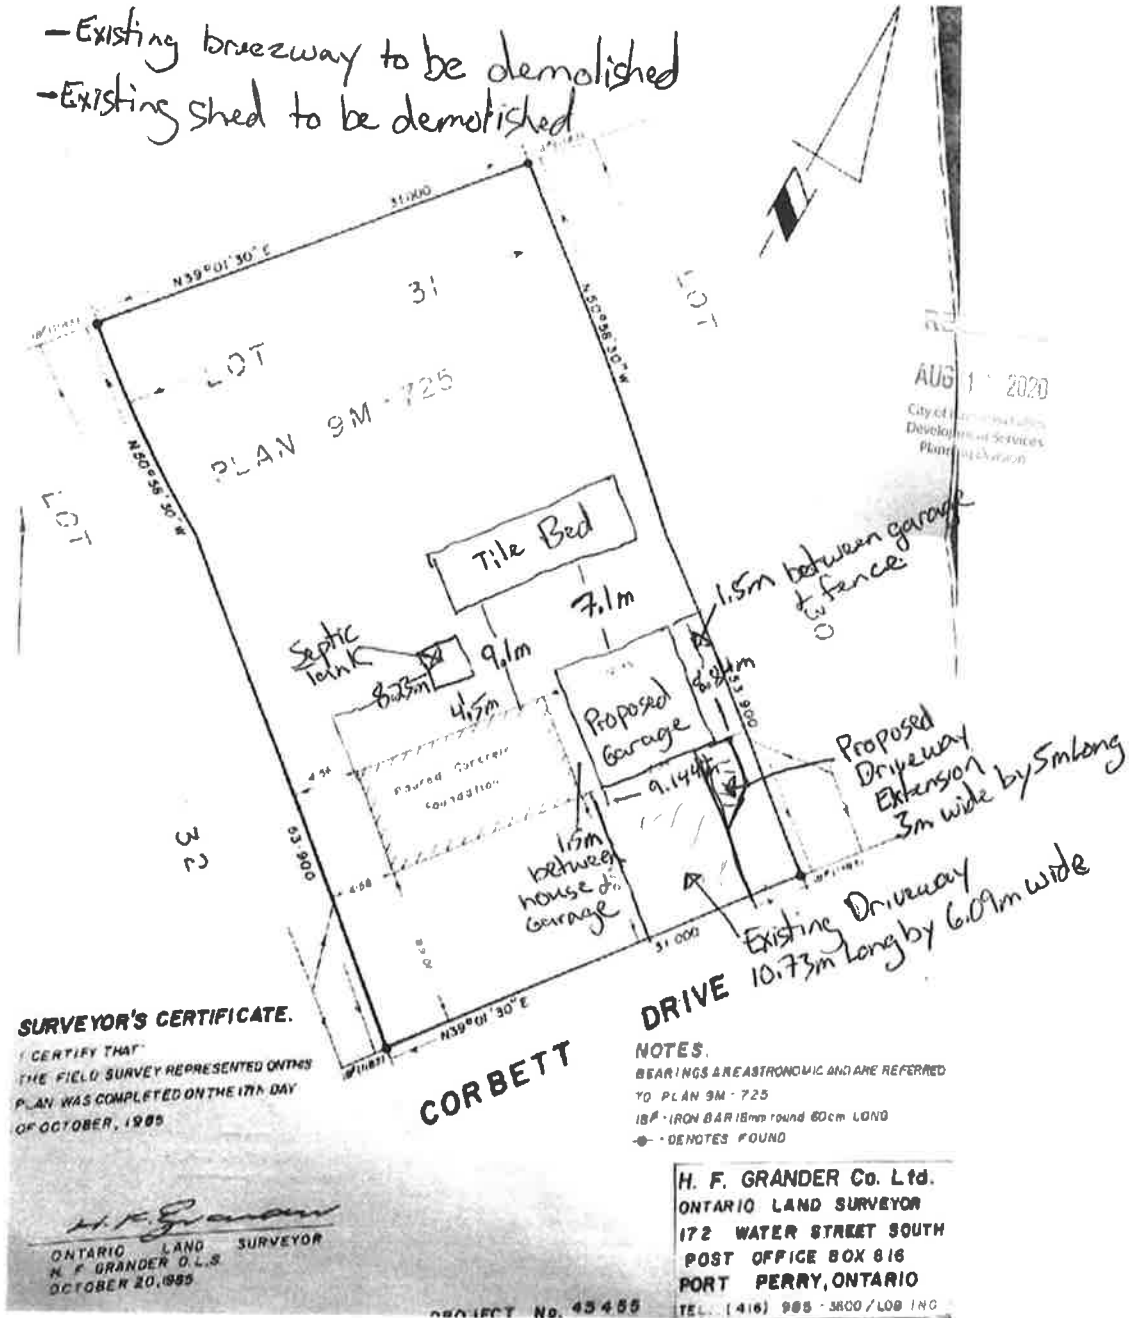 -Existing breezway to be demolished
-Existing shed to be demolished
31.000
N39°01'30"E
31
N50°58'30"W
LOT
LOT
PLAN 9M-725
N50°58'30"W
LOT
AUG 1 2020
City of
Development Services
Planning Division
Tile Bed
1.5m between garage
& fence
30
7.1m
Septic
tank
9.1m
8.23m
4.5m
8.84m
53.900
Proposed
Garage
Proposed
Driveway
Extension
3m wide by 5m Long
Poured Concrete
Foundation
9.144m
32
53.900
4.58
1.5m
between
house &
Garage
Existing Driveway
10.73m Long by 6.09m wide
31.000
N39°01'30"E
CORBETT DRIVE
SURVEYOR'S CERTIFICATE.
I CERTIFY THAT
THE FIELD SURVEY REPRESENTED ON THIS
PLAN WAS COMPLETED ON THE 17th DAY
OF OCTOBER, 1985
H. F. Grander
ONTARIO LAND SURVEYOR
H F GRANDER O.L.S
OCTOBER 20, 1985
NOTES.
BEARINGS ARE ASTRONOMIC AND ARE REFERRED
TO PLAN 9M-725
IB - IRON BAR 18mm round 60cm LONG
- DENOTES FOUND
H. F. GRANDER Co. Ltd.
ONTARIO LAND SURVEYOR
172 WATER STREET SOUTH
POST OFFICE BOX 816
PORT PERRY, ONTARIO
TEL. (416) 985-3600
PROJECT No. 45455